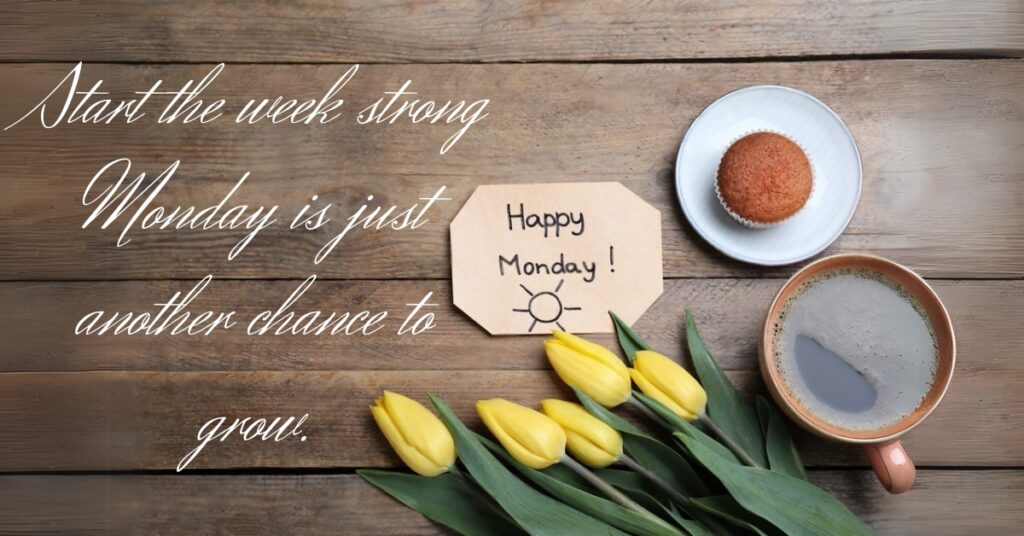 Start the week strong
Monday is just
another chance to
grow.
Happy
Monday !